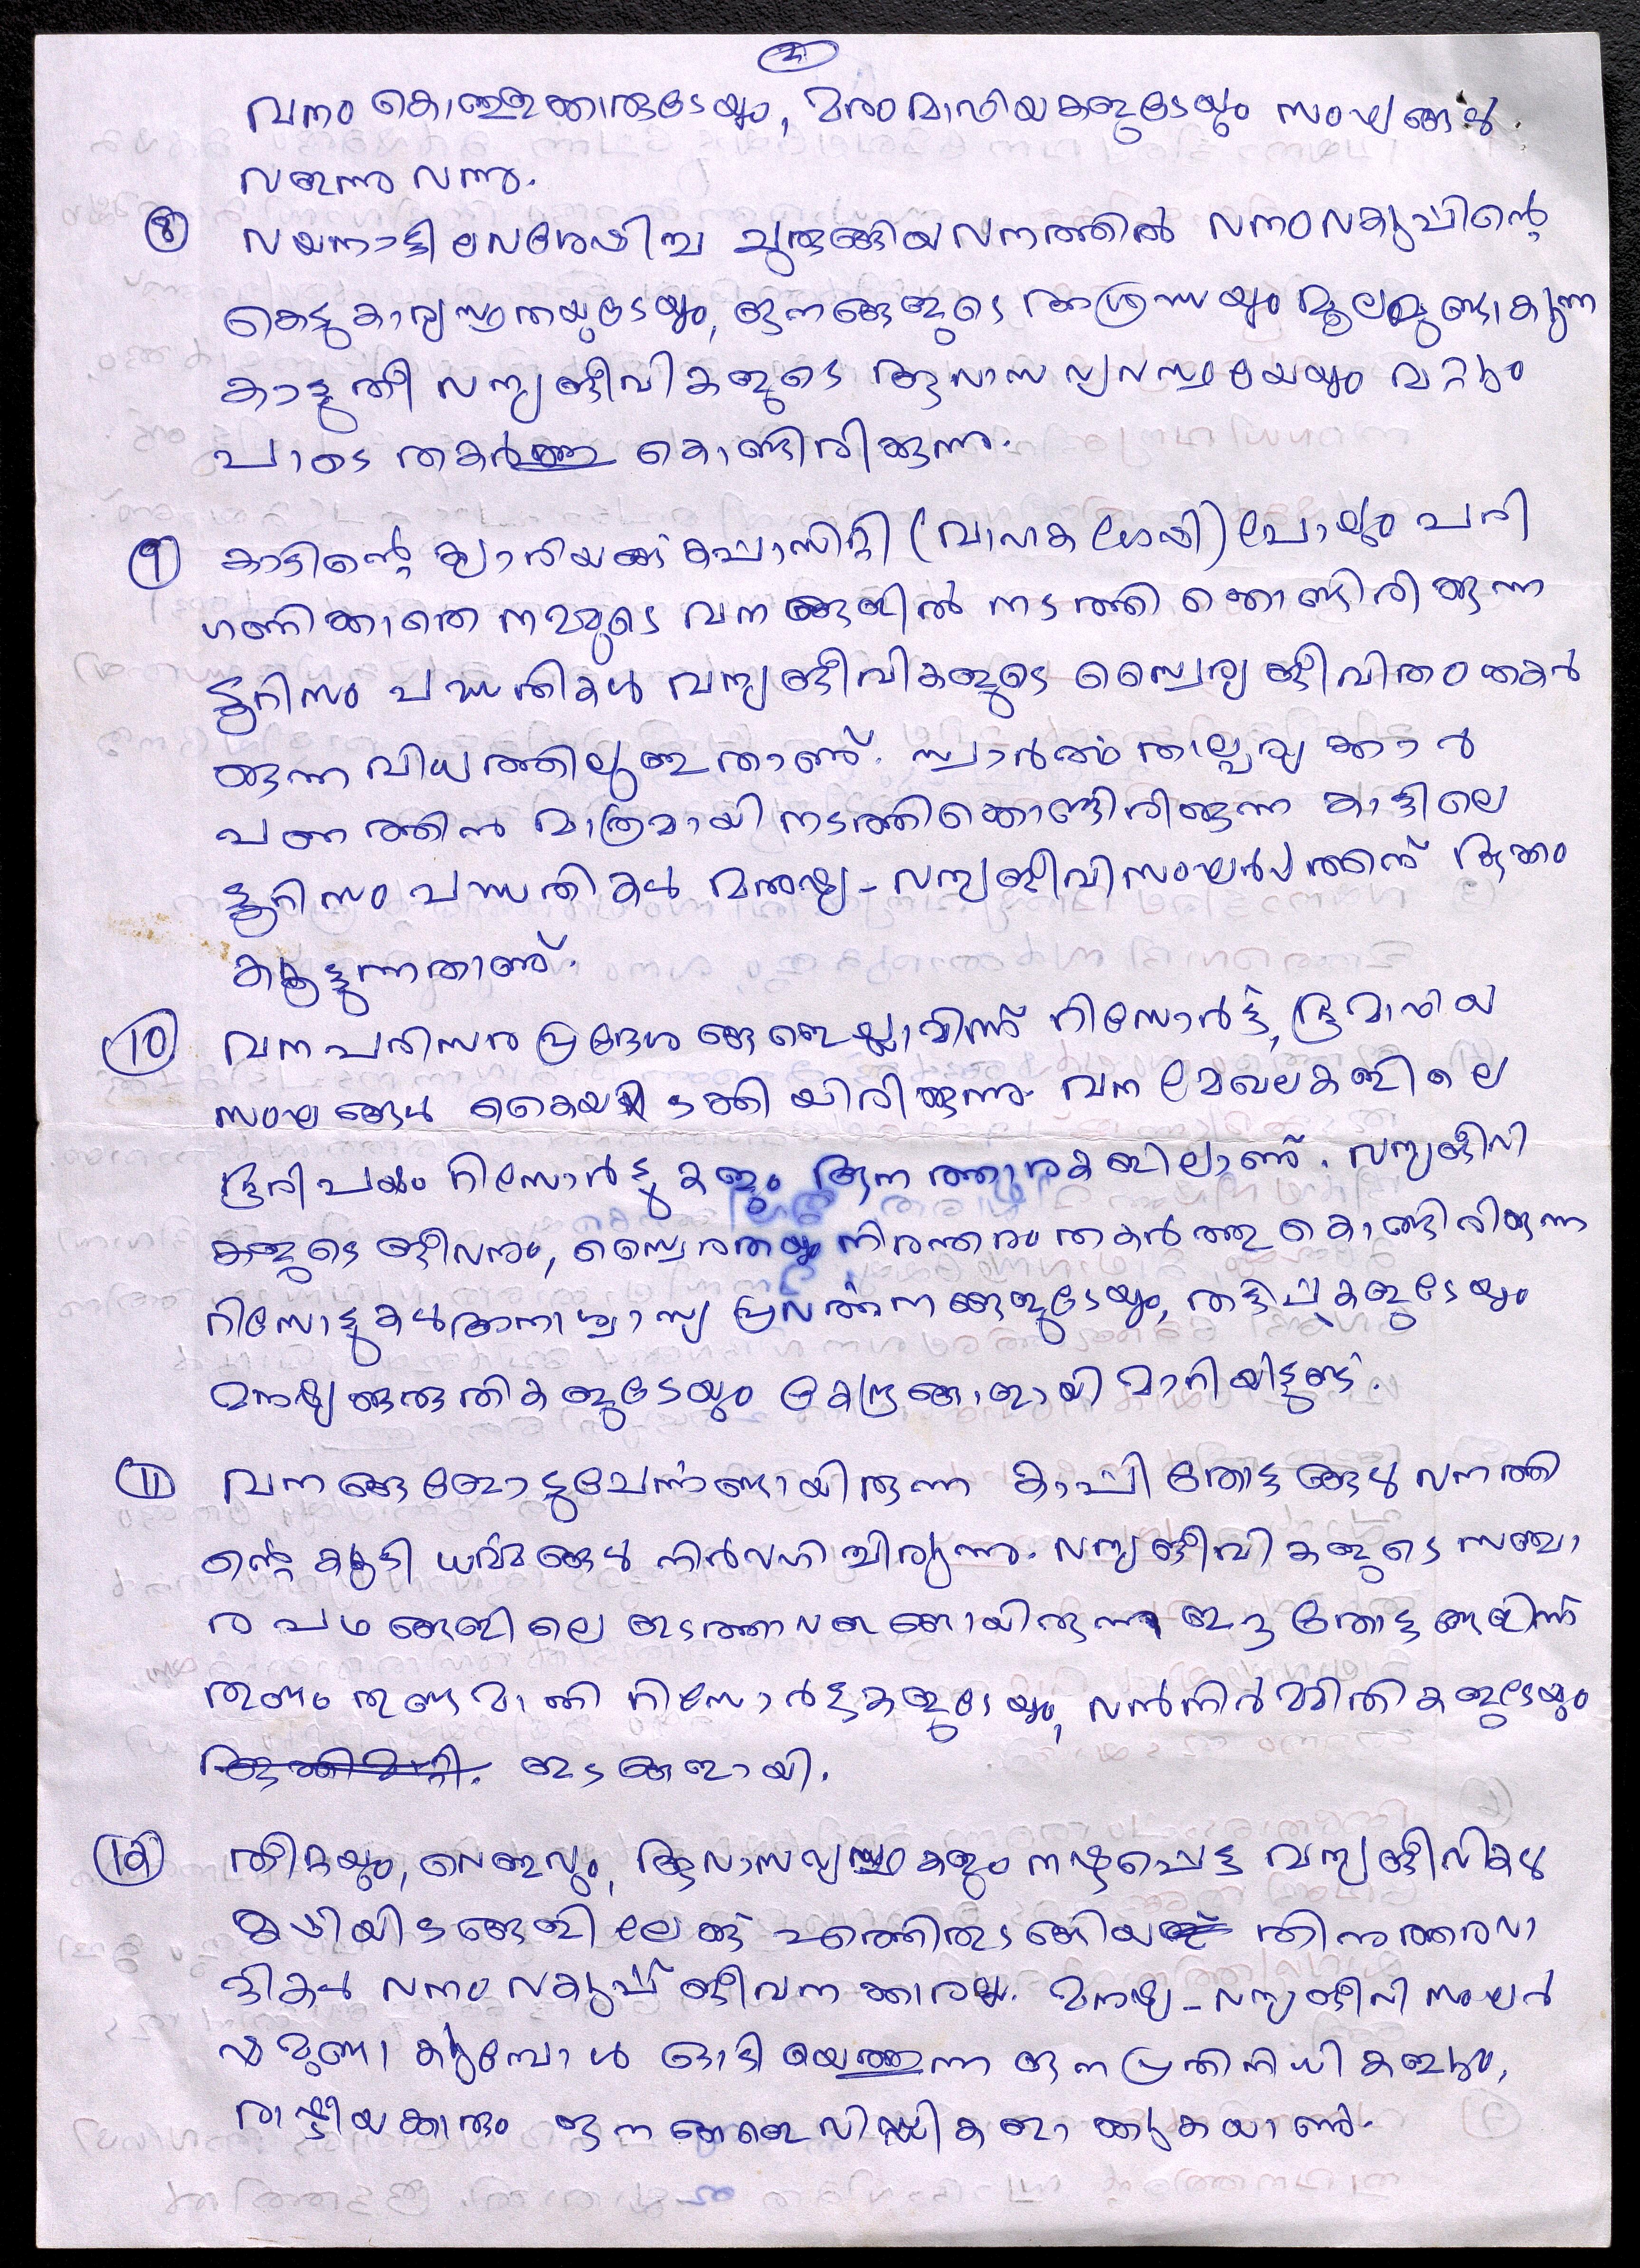 വനം കൊള്ളക്കാരുടേയും, മരം മാഫിയകളുടേയും സംഘങ്ങൾ.
വളർന്നു വന്നു.
8 വയനാട്ടിലവശേഷിച്ച ചുരുങ്ങിയ വനത്തിൽ വനം വകുപ്പിന്റെ
കെടുകാര്യസ്ഥതയുടേയും, ജനങ്ങളുടെ അശ്രദ്ധയും മൂലമുണ്ടാകുന്ന
കാട്ടുതീ വന്യജീവികളുടെ ആവാസ വ്യവസ്ഥയേയും പാടെ
പാടെ തകർത്തു കൊണ്ടിരിക്കുന്നു.
9 കാടിന്റെ ക്യാരിയങ്ങ് കപ്പാസിറ്റി (വാഹകശേഷി) പോലും പരി
ഗണിക്കാതെ നമ്മുടെ വനങ്ങളിൽ നടത്തി ക്കൊണ്ടിരിക്കുന്ന
ടൂറിസം പദ്ധതികൾ വന്യജീവികളുടെ സ്വൈര്യ ജീവിതം തകർ
ക്കുന്ന വിധത്തിലുള്ളതാണ്. സ്വാർത്ഥ താല്പര്യക്കാർ
പണത്തിന് മാത്രമായി നടത്തിക്കൊണ്ടിരിക്കുന്ന കാട്ടിലെ
ടൂറിസം പദ്ധതികൾ മനുഷ്യ - വന്യജീവി സംഘർഷത്തിന് ആക്കം
കൂട്ടുന്നതാണ്.
10 വന പരിസര പ്രദേശങ്ങളെല്ലാമിന്ന് റിസോർട്ട്, ഭൂമാഫിയ
സംഘങ്ങൾ കൈയ്യടക്കിയിരിക്കുന്നു. വന മേഖലകളിലെ
ഭൂരിപക്ഷം റിസോർട്ടുകളും ആനത്താരകളിലാണ്. വന്യജീവി
കളുടെ ജീവനും, സ്വൈരതയും നിരന്തരം തകർത്തു കൊണ്ടിരിക്കുന്ന
റിസോട്ടുകൾ അനാശ്യാസ്യ പ്രവർത്തനങ്ങളുടേയും, തട്ടിപ്പുകളുടേയും
മനുഷ്യക്കുരുതികളുടേയും കേന്ദ്രങ്ങളായി മാറിയിട്ടുണ്ട്.
11 വനങ്ങളോടു ചേർന്നുണ്ടായിരുന്ന കാപ്പി തോട്ടങ്ങൾ വനത്തി
ന്റെ കൂടി ധർമ്മങ്ങൾ നിർവഹിച്ചിരുന്നു. വന്യജീവികളുടെ സഞ്ചാ
ര പഥങ്ങളിലെ ഇടത്താവളങ്ങളായിരുന്ന ഇൗ തോട്ടങ്ങളിന്ന്
തുണ്ടം തുണ്ടമാക്കി റിസോർട്ടുകളുടേയും, വൻ നിർമ്മിതികളുടേയും
ഇടങ്ങളായി.
12 തീറ്റയും, വെള്ളവും, ആവാസവ്യവസ്ഥകളും നഷ്ടപ്പെട്ട വന്യജീവികൾ
കുടിയിടങ്ങളിലേക്ക് എത്തിതുടങ്ങിയ തിനുത്തരവാ
ദികൾ വനം വകുപ്പ് ജീവനക്കാരല്ല. മനുഷ്യ - വന്യജീവി സംഘർ
ഷമുണ്ടാകുമ്പോൾ ഓടിയെത്തുന്ന ജനപ്രതിനിധികളും,
രാഷ്ട്രീയക്കാരും ജനങ്ങളെ വിഢ്ഢികളാക്കുകയാണ്.